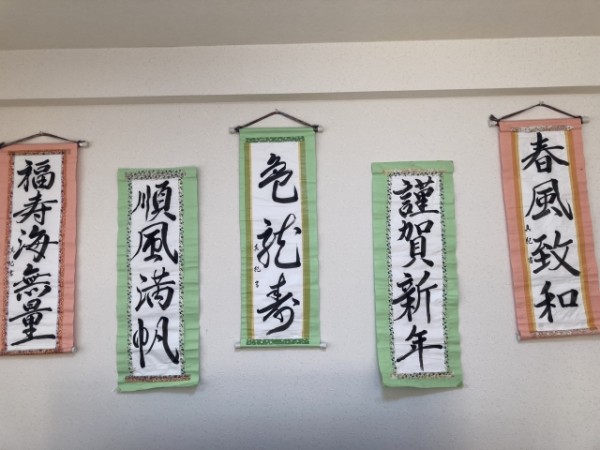 春風致和
謹賀新年
亀龍寿
順風満帆
福寿海無量